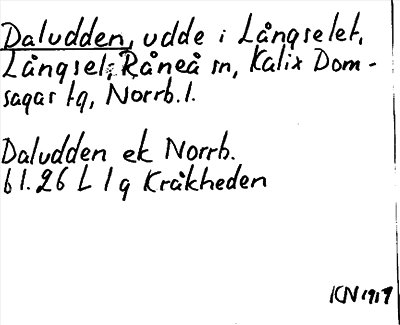 Daludden, udde i Långselet,
Långsel, Råneå sn, Kalix Dom-
sagas tg, Norrb. l.
Daludden ek Norrb.
bl. 26 L l q Kråkheden
KN 1917